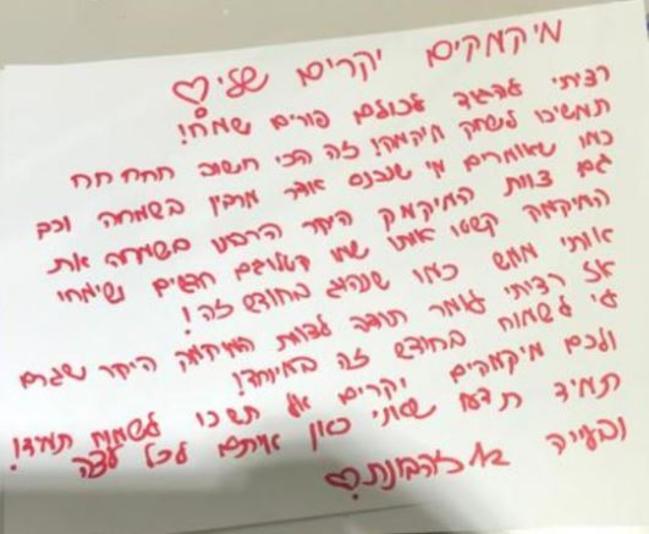 מיקמקים יקרים שלי
רציתי להגיד לכולם פורים שמח!
תמשיכו לשחק מיקמק! זה הכי חשוב חחח חח
כמו שאומרים מי שנכנס אדר מרבין בשמחה וכך
גם צוות המיקמק היקר הרבו בשמחה את
המיקמק קשטו אותו שמו קטלוגים חדשים ושימחו
אותי ממש כמו שנהוג בחודש זה!
אז רציתי לומר תודה לצוות המיקמק היקר שגרם
לי לשמוח בחודש זה במיוחד!
ולכם מיקמקים יקרים אל תשכחו לשמוח תמיד!
תמיד תדעו שאני כאן איתכם לכל
ובעייה